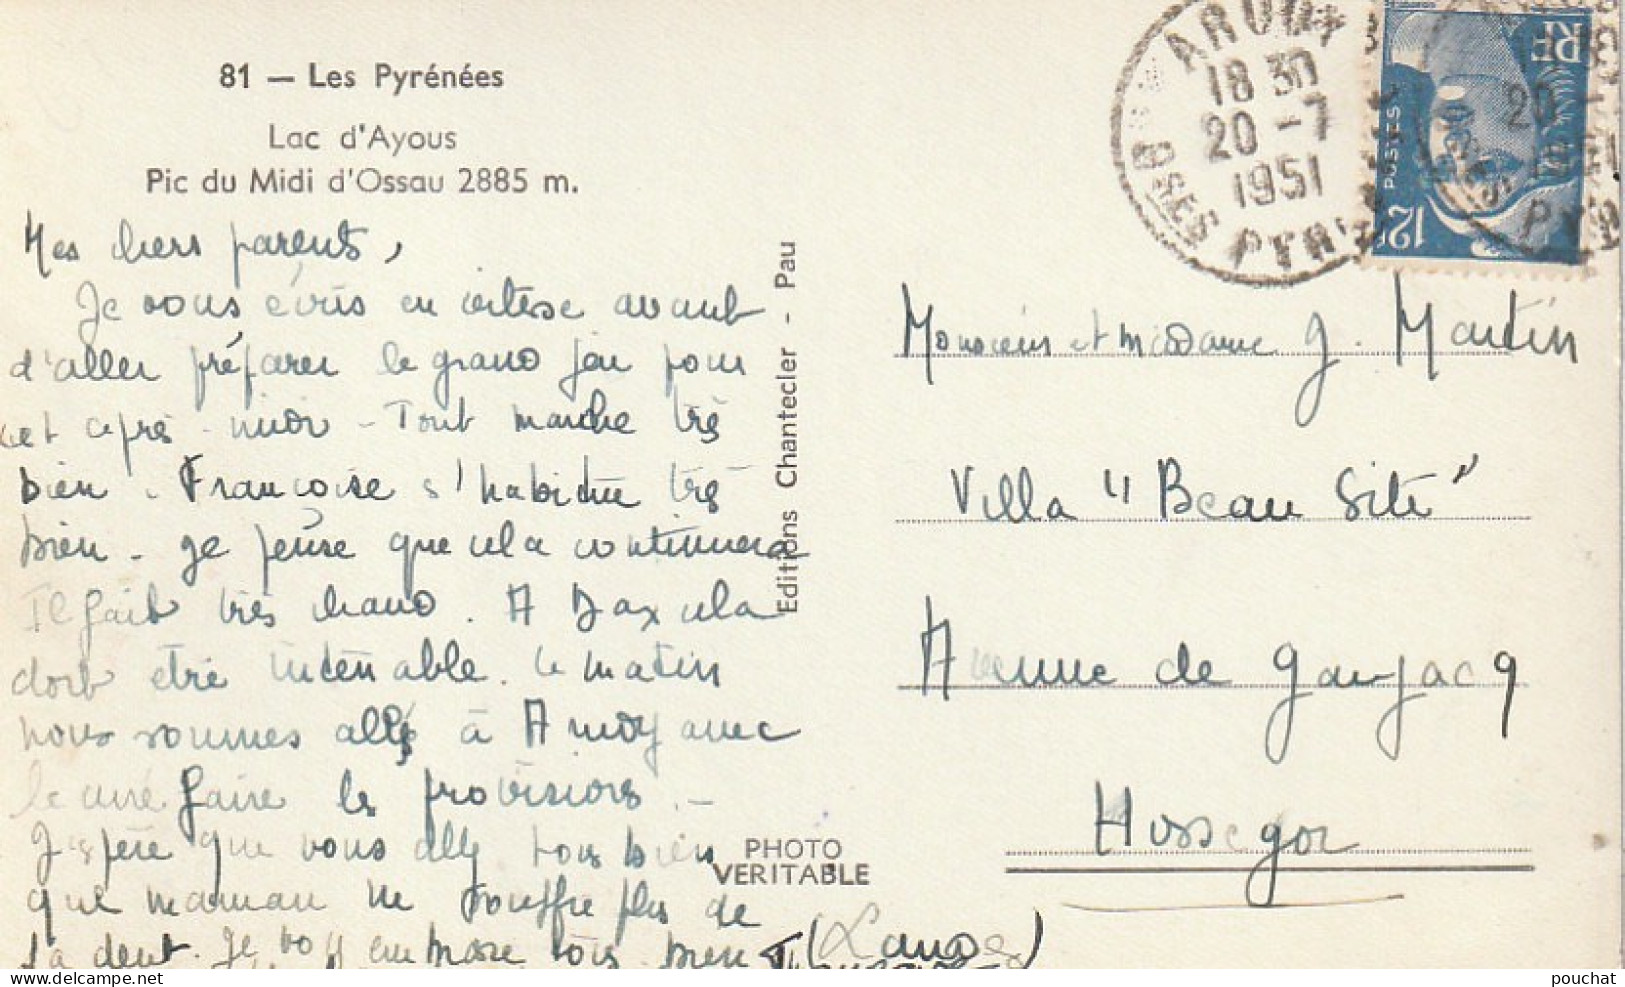 81 — Les Pyrénées
Lac d'Ayous
Pic du Midi d'Ossau 2885 m.
Mes chers parents,
Je vous écris en vitesse avant
d'aller préparer le grand jeu pour
cet après-midi - Tout marche très
bien. Françoise s'habitue très
bien - Je pense que cela continuera
Il fait très chaud. A Dax cela
doit être intenable. Ce matin
nous sommes allés à Arudy avec
le curé faire les provisions. -
J'espère que vous allez tous bien
que maman ne souffre plus de
sa dent. Je vous embrasse tous bien
Editions Chantecler - Pau
PHOTO
VERITABLE
ARUDY
18 30
20 -7
1951
PYR
RF
POSTES
12F
Monsieur et Madame J. Martin
Villa "Beau Site"
Avenue de Gaujacq
Hossegor
(Landes)
pouchat